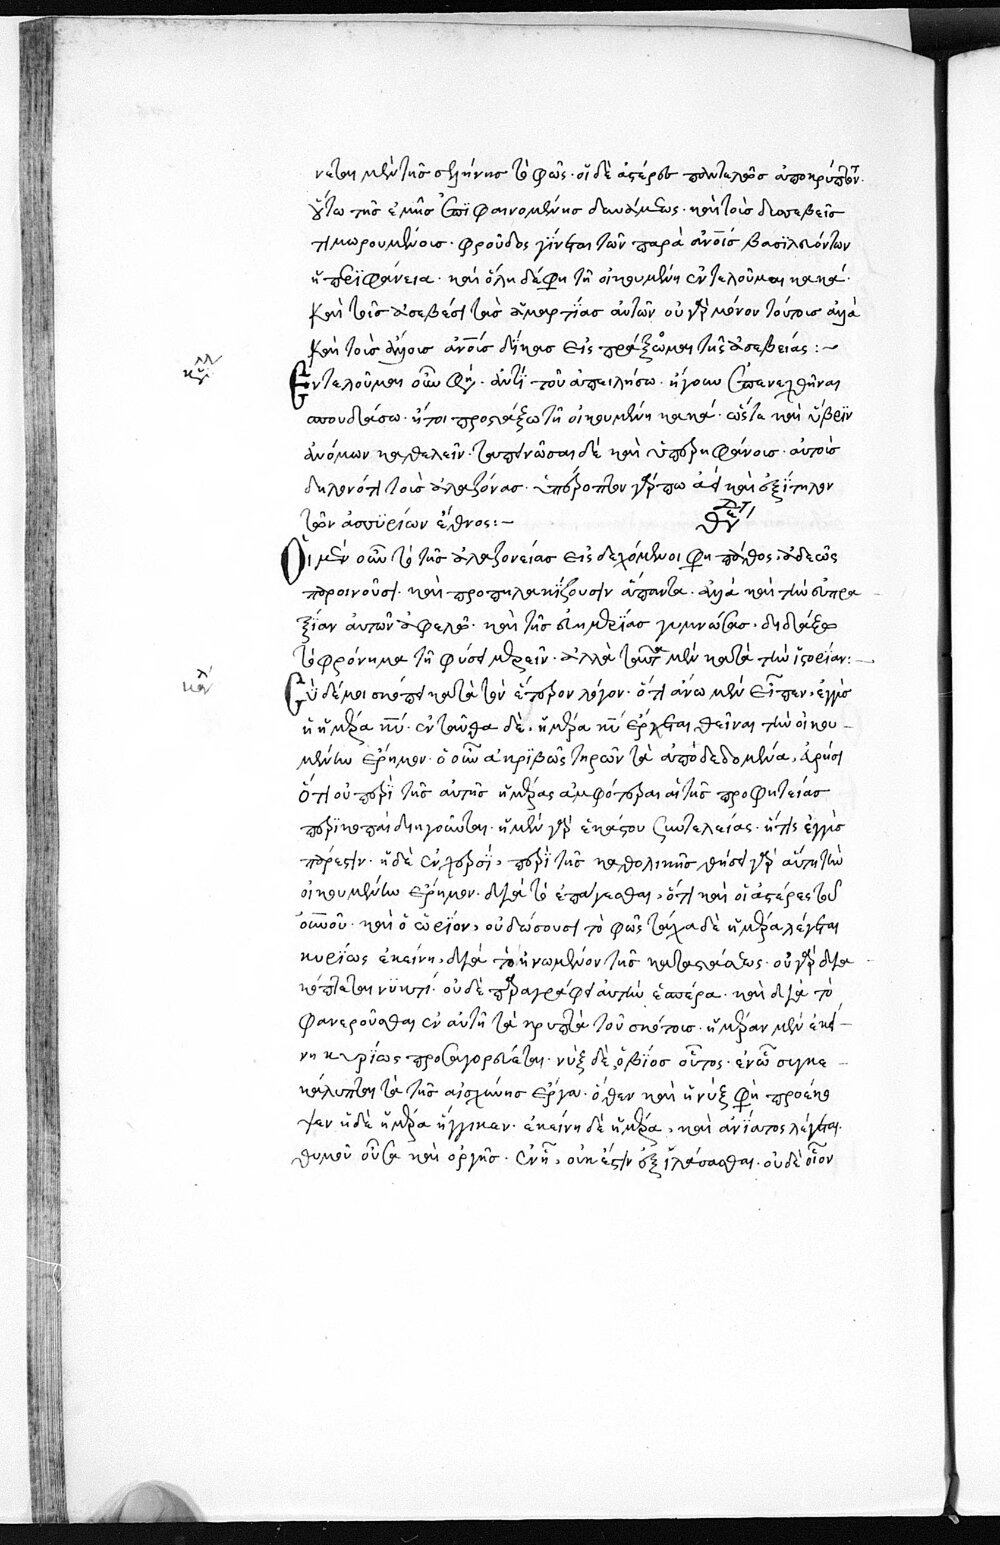 νεται μὲν τῆς σελήνης τὸ φῶς· οἱ δὲ ἀστέρες παντελῶς ἀποκρύπτον.
οὕτω τῆς ἐμῆς ἐπιφαινομένης δυνάμεως· καὶ τοῖς δυσσεβεῖς
τιμωρουμένοις· φροῦδος γίνεται τῶν παρὰ ἀνοις βασιλευόντων
ἡ περιφάνεια· καὶ ὅλη δέ φη τῇ οἰκουμένῃ ἐντελοῦμαι κακά·
καὶ τοῖς ἀσεβέσι τὰς ἁμαρτίας αὐτῶν οὐ γὰρ μόνον τούτοις ἀλλὰ
καὶ τοῖς ἄλλοις ἀνοις δίκας εἰσπράξομαι τῆς ἀσεβείας:~
Ἐντελοῦμαι οὖν φη· ἀντὶ τοῦ ἀπειλήσω· ἤγουν ἐπενεχθῆναι
σπουδάσω· ἤτοι προστάξω τῇ οἰκουμένῃ κακά· ὥστε καὶ ὕβριν
ἀνόμων καθελεῖν· ταπεινῶσαι δὲ καὶ ὑπερηφάνους· αὐτοὺς
δηλονότι τοὺς ἀλαζόνας· ὑπέροπτον γάρ πω ἀεὶ καὶ ἐξίτηλον
τῶν ἀσσυρίων ἔθνος:~
Οἱ μὲν οὖν τὸ τῆς ἀλαζονείας εἰσδεχόμενοι φη πάθος, ἀδεῶς
παροινοῦσι· καὶ προπηλακίζουσιν ἅπαντα· ἀλλὰ καὶ τὴν εὐπρα
ξίαν αὐτῶν ἀφελῶ· καὶ τῆς εὐημερίας γυμνώσας· διδάξω
τὸ φρόνημα τῇ φύσει μετρεῖν· ἀλλὰ ταῦτα μὲν κατὰ τὴν ἱστορίαν:~
Σὺ δέ μοι σκόπει κατὰ τὸν ἕτερον λόγον· ὅτι ἄνω μὲν εἶπεν, ἐγγὺς
ἡ ἡμέρα κυ· ἐνταῦθα δὲ, ἡμέρα κυ ἔρχεται θεῖναι τὴν οἰκου
μένην ἔρημον· ὁ οὖν ἀκριβῶς τηρῶν τὰ ἀποδεδομένα, εὑρήσει
ὅτι οὐ περὶ τῆς αὐτῆς ἡμέρας ἀμφότεραι αἱ τῆς προφητείας
περικοπαὶ διηγοῦνται· ἡ μὲν γὰρ ἑκάστου συντελείας· ἥτις ἐγγὺς
πάρεστιν· ἡ δὲ ἐνεστερσί, περὶ τῆς καθολικῆς θήσει γὰρ αὕτη τὴν
οἰκουμένην ἔρημον· διὰ τὸ ἐπάγεσθαι, ὅτι καὶ οἱ ἀστέρες τοῦ
οὐνοῦ· καὶ ὁ ὠρίον, οὐ δώσουσι τὸ φῶς τάχα δὲ ἡμέρα λέγεται
κυρίως ἐκείνη, διὰ τὸ ἡνωμένον τῆς καταστάσεως· οὐ γὰρ δια
κόπτεται νυκτί· οὐδὲ περιγράφει αὐτὴν ἑσπέρα· καὶ διὰ τὸ
φανεροῦσθαι ἐν αὐτῇ τὰ κρυπτὰ τοῦ σκότους· ἡμέραν μὲν ἐκεί
νη κυρίως προσαγορεύεται· νὺξ δὲ, ὁ βίος οὗτος· ἐν ᾧ συγκε
κάλυπται τὰ τῆς αἰσχύνης ἔργα· ὅθεν καὶ ἡ νὺξ φη προέκο
ψεν ἡ δὲ ἡμέρα ἤγγικεν· ἐκείνη δὲ ἡμέρα, καὶ ἀνίατος λέγεται.
θυμοῦ οὖσα καὶ ὀργῆς· ἐν ᾗ, οὐκ ἔστιν ἐξιλάσασθαι· οὐδὲ οἷον